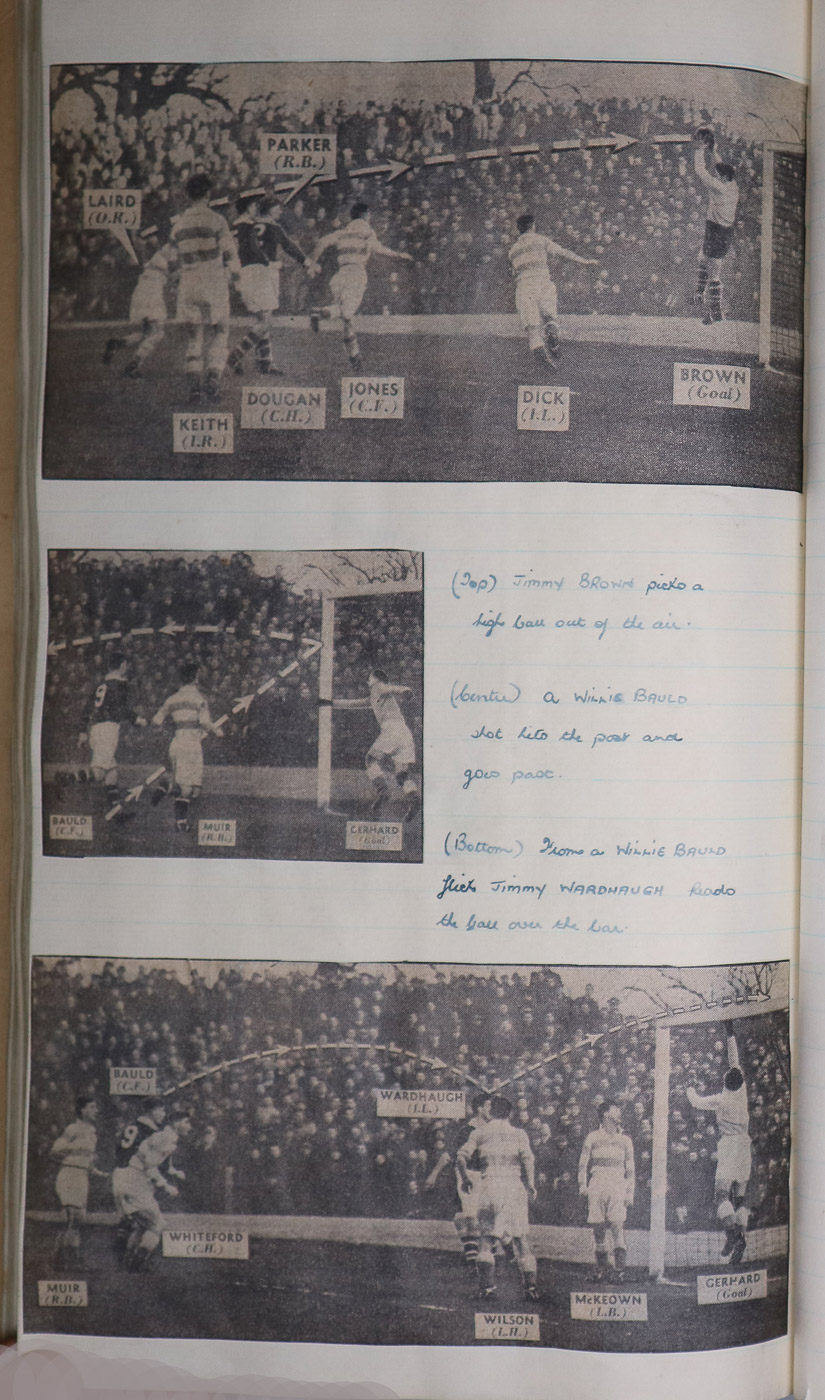 PARKER
(R.B.)
LAIRD
(O.R.)
KEITH
(I.R.)
DOUGAN
(C.H.)
JONES
(C.F.)
DICK
(I.L.)
BROWN
(Goal)
9
BAULD
(C.F.)
MUIR
(R.B.)
GERHARD
(Goal)
(Top) Jimmy BROWN picks a
high ball out of the air.
(Centre) a WILLIE BAULD
shot hits the post and
goes past.
(Bottom) From a WILLIE BAULD
flick Jimmy WARDHAUGH heads
the ball over the bar.
BAULD
(C.F.)
WARDHAUGH
(I.L.)
9
WHITEFORD
(C.H.)
MUIR
(R.B.)
WILSON
(L.H.)
McKEOWN
(L.B.)
GERHARD
(Goal)